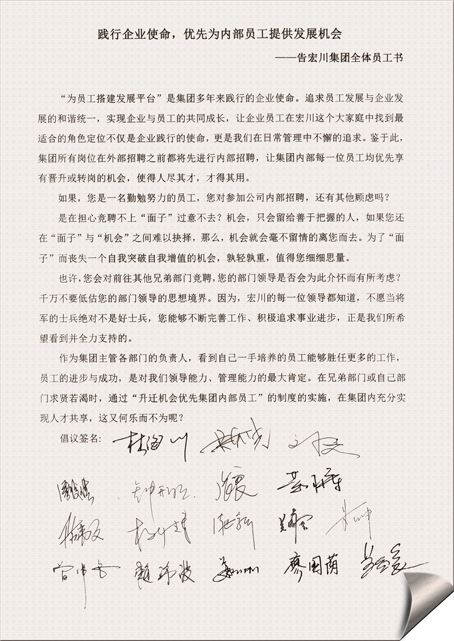 践行企业使命，优先为内部员工提供发展机会
——告宏川集团全体员工书
“为员工搭建发展平台”是集团多年来践行的企业使命。追求员工发展与企业发
展的和谐统一，实现企业与员工的共同成长，让企业员工在宏川这个大家庭中找到最
适合的角色定位不仅是企业践行的使命，更是我们在日常管理中不懈的追求。鉴于此，
集团所有岗位在外部招聘之前都将先进行内部招聘，让集团内部每一位员工均优先享
有晋升或转岗的机会，使得人尽其才，才得其用。
如果，您是一名勤勉努力的员工，您对参加公司内部招聘，还有其他顾虑吗？
是在担心竞聘不上“面子”过意不去？机会，只会留给善于把握的人，如果您还
在“面子”与“机会”之间难以抉择，那么，机会就会毫不留情的离您而去。为了“面
子”而丧失一个自我突破自我增值的机会，孰轻孰重，值得您细细思量。
也许，您会对前往其他兄弟部门竞聘，您的部门领导是否会为此介怀而有所考虑？
千万不要低估您的部门领导的思想境界。因为，宏川的每一位领导都知道，不愿当将
军的士兵绝对不是好士兵，您能够不断完善工作、积极追求事业进步，正是我们所希
望看到并全力支持的。
作为集团主管各部门的负责人，看到自己一手培养的员工能够胜任更多的工作，
员工的进步与成功，是对我们领导能力、管理能力的最大肯定。在兄弟部门或自己部
门求贤若渴时，通过“升迁机会优先集团内部员工”的制度的实施，在集团内充分实
现人才共享，这又何乐而不为呢？
倡议签名：
廖国荫